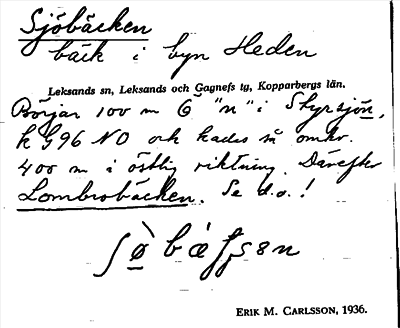 Sjöbäcken
bäck i byn Heden
Leksands sn, Leksands och Gagnefs tg, Kopparbergs län.
Börjar 100 m Ö "n" i Styrsjön,
k 496 NO och kallas så omkr.
400 m i östlig riktning. Därefter
Lombrobäcken. Se d.o.!
ERIK M. CARLSSON, 1936.